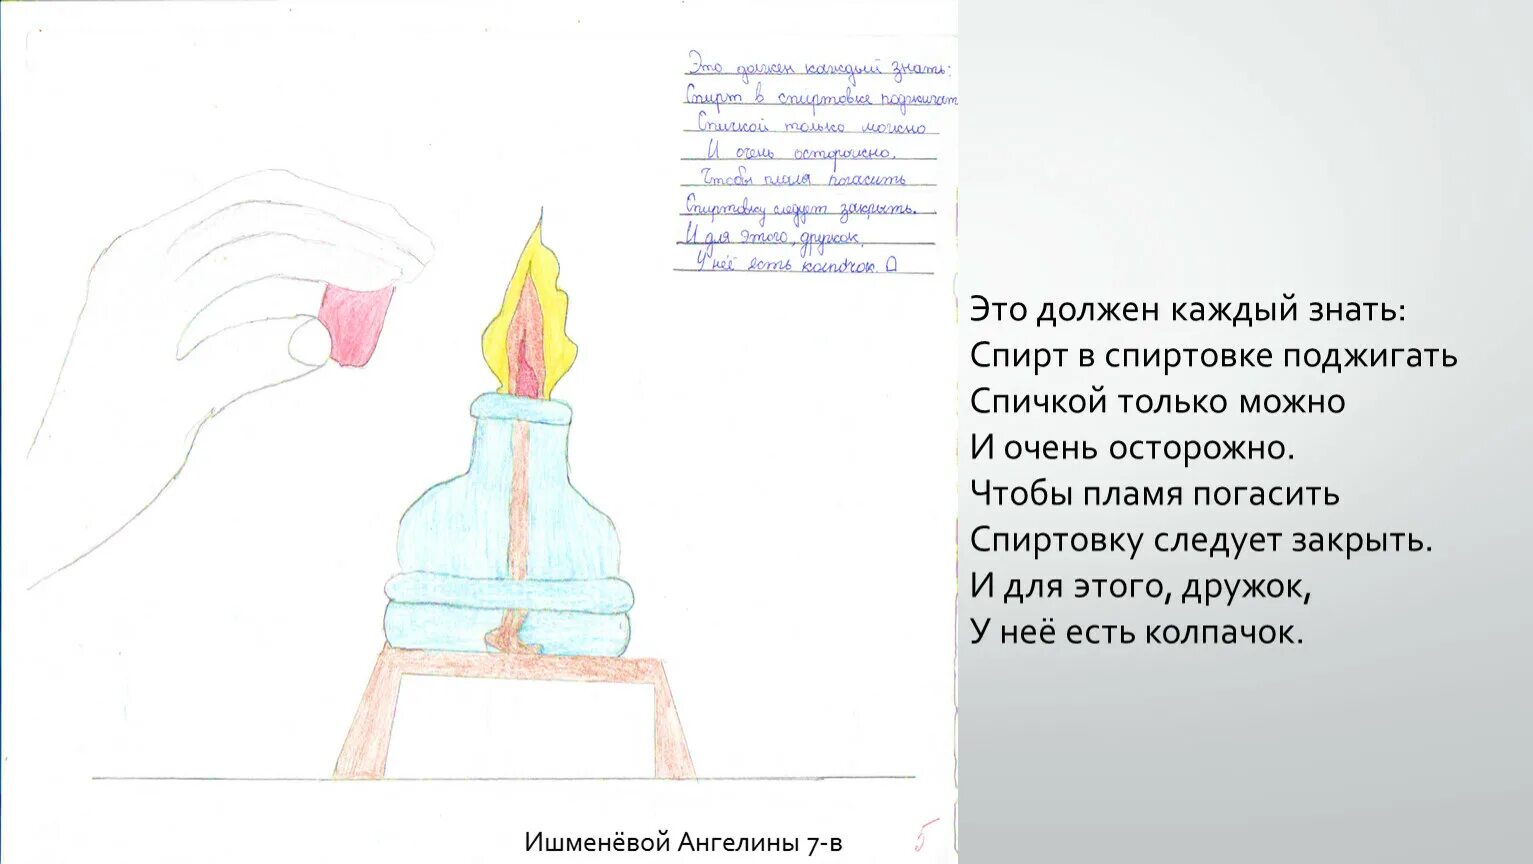 Это должен каждый знать:
Спирт в спиртовке поджигат
Спичкой только можно
И очень осторожно.
Чтобы пламя погасить
Спиртовку следует закрыть.
И для этого, дружок,
У неё есть колпачок.
Это должен каждый знать:
Спирт в спиртовке поджигать
Спичкой только можно
И очень осторожно.
Чтобы пламя погасить
Спиртовку следует закрыть.
И для этого, дружок,
У неё есть колпачок.
Ишменёвой Ангелины 7-в
5